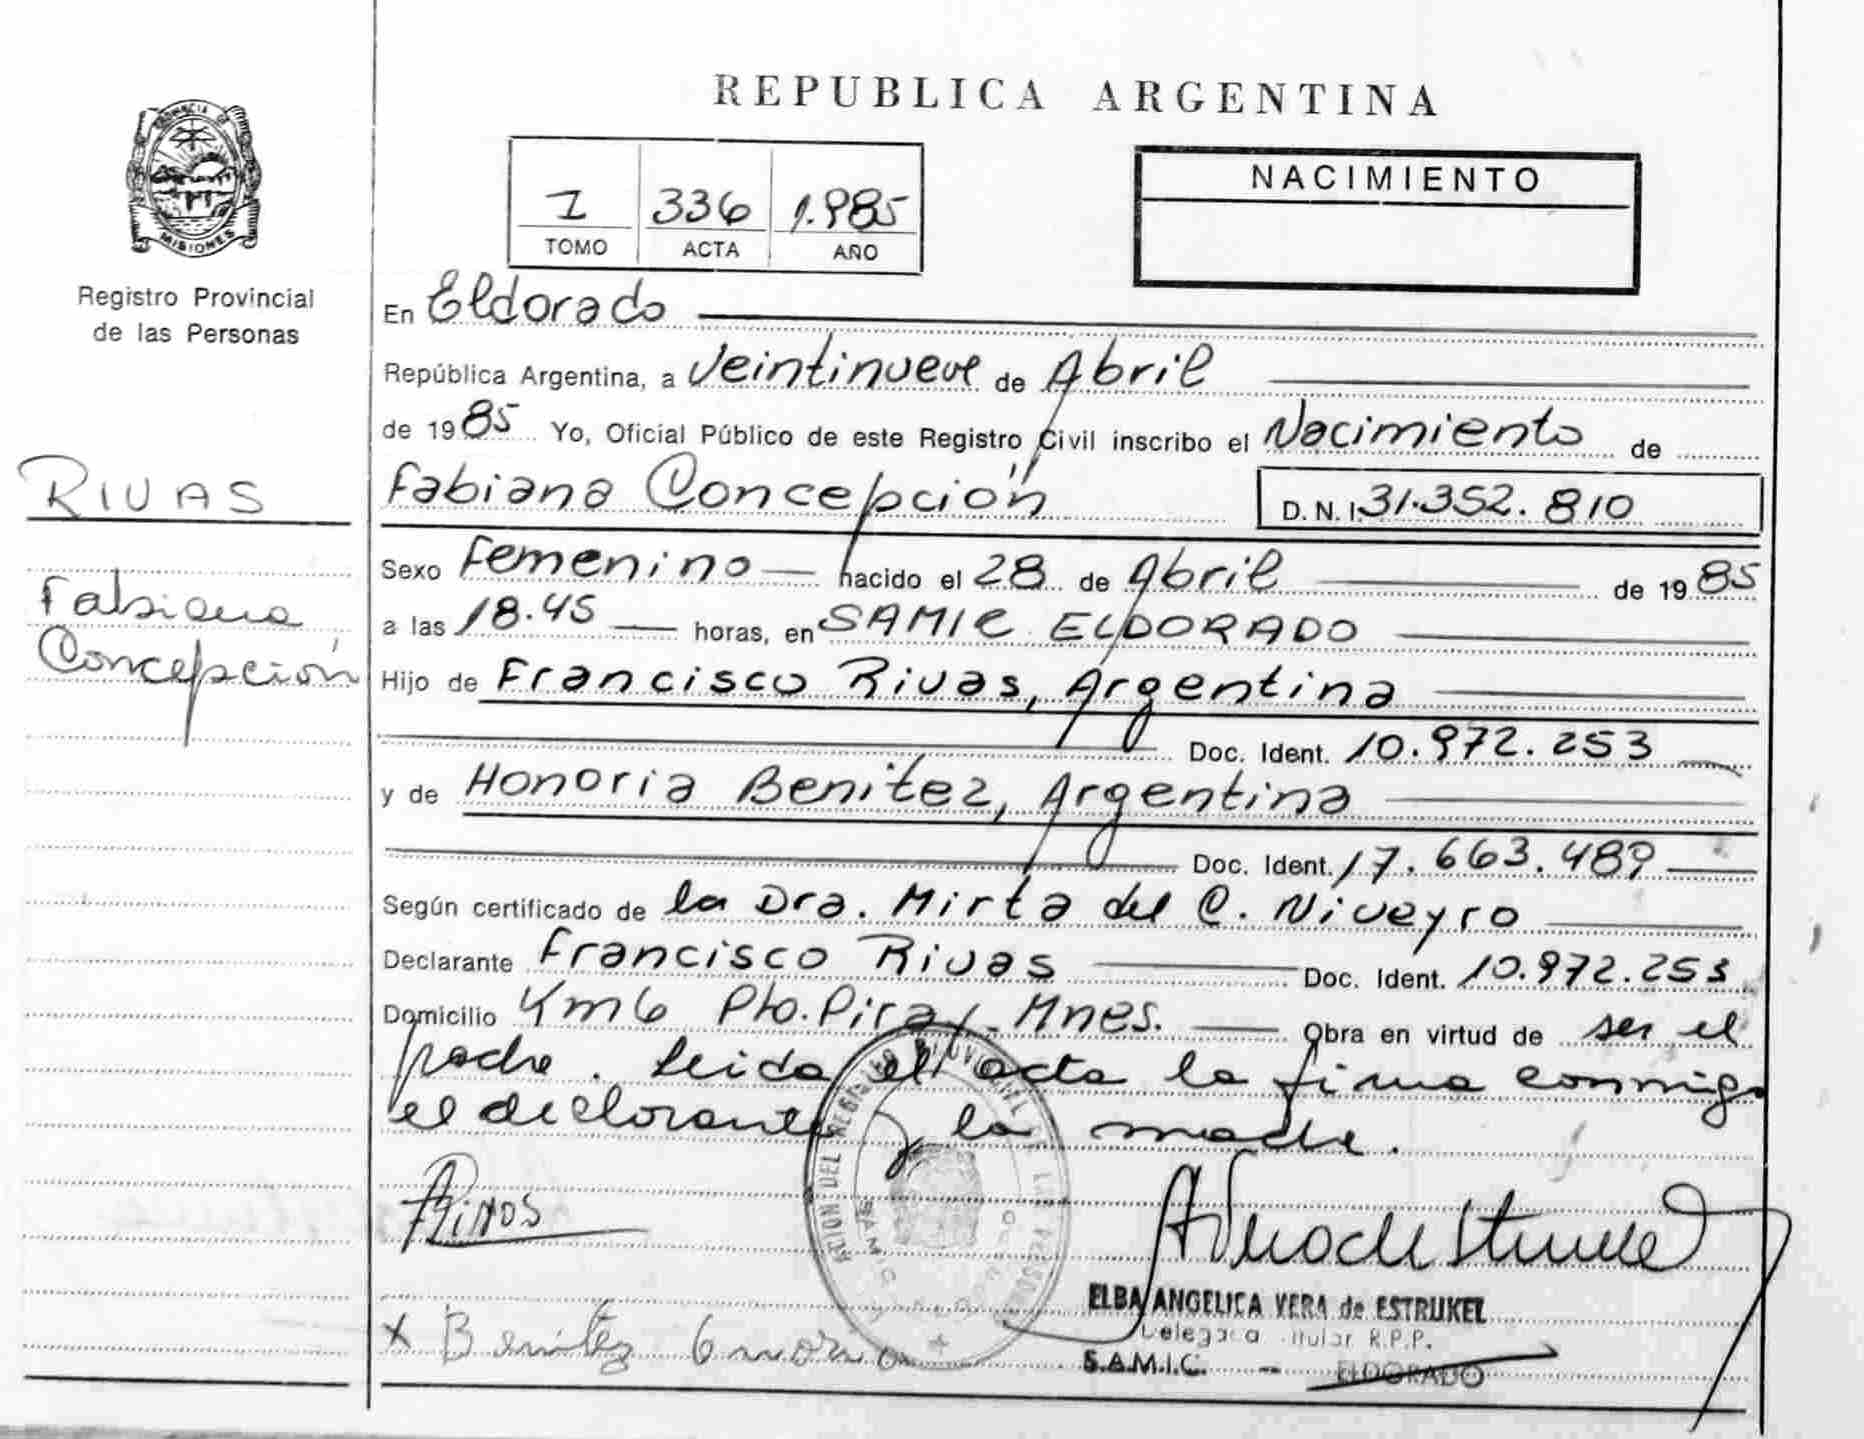 REPUBLICA ARGENTINA
PROVINCIA DE
MISIONES
Registro Provincial
de las Personas
RIVAS
Fabiana
Concepción
1 336 1.985
TOMO ACTA AÑO
NACIMIENTO
En Eldorado
República Argentina, a Veintinueve de Abril
de 1985 Yo, Oficial Público de este Registro Civil inscribo el Nacimiento de
Fabiana Concepción D.N.I. 31.352.810
Sexo Femenino nacido el 28 de Abril de 1985
a las 18.45 horas, en SAMIC ELDORADO
Hijo de Francisco Rivas, Argentina
Doc. Ident. 10.972.253
y de Honoria Benitez, Argentina
Doc. Ident. 17.663.489
Según certificado de la Dra. Mirta del C. Niveyro
Declarante Francisco Rivas Doc. Ident. 10.972.253
Domicilio Km6 Pto. Piray - Mnes. Obra en virtud de ser el
padre. Leida el acta la firma conmigo
el declarante y la madre.
ELBA ANGELICA VERA de ESTRUKEL
Delegada Titular R.P.P.
S.A.M.I.C. - ELDORADO
x Benitez